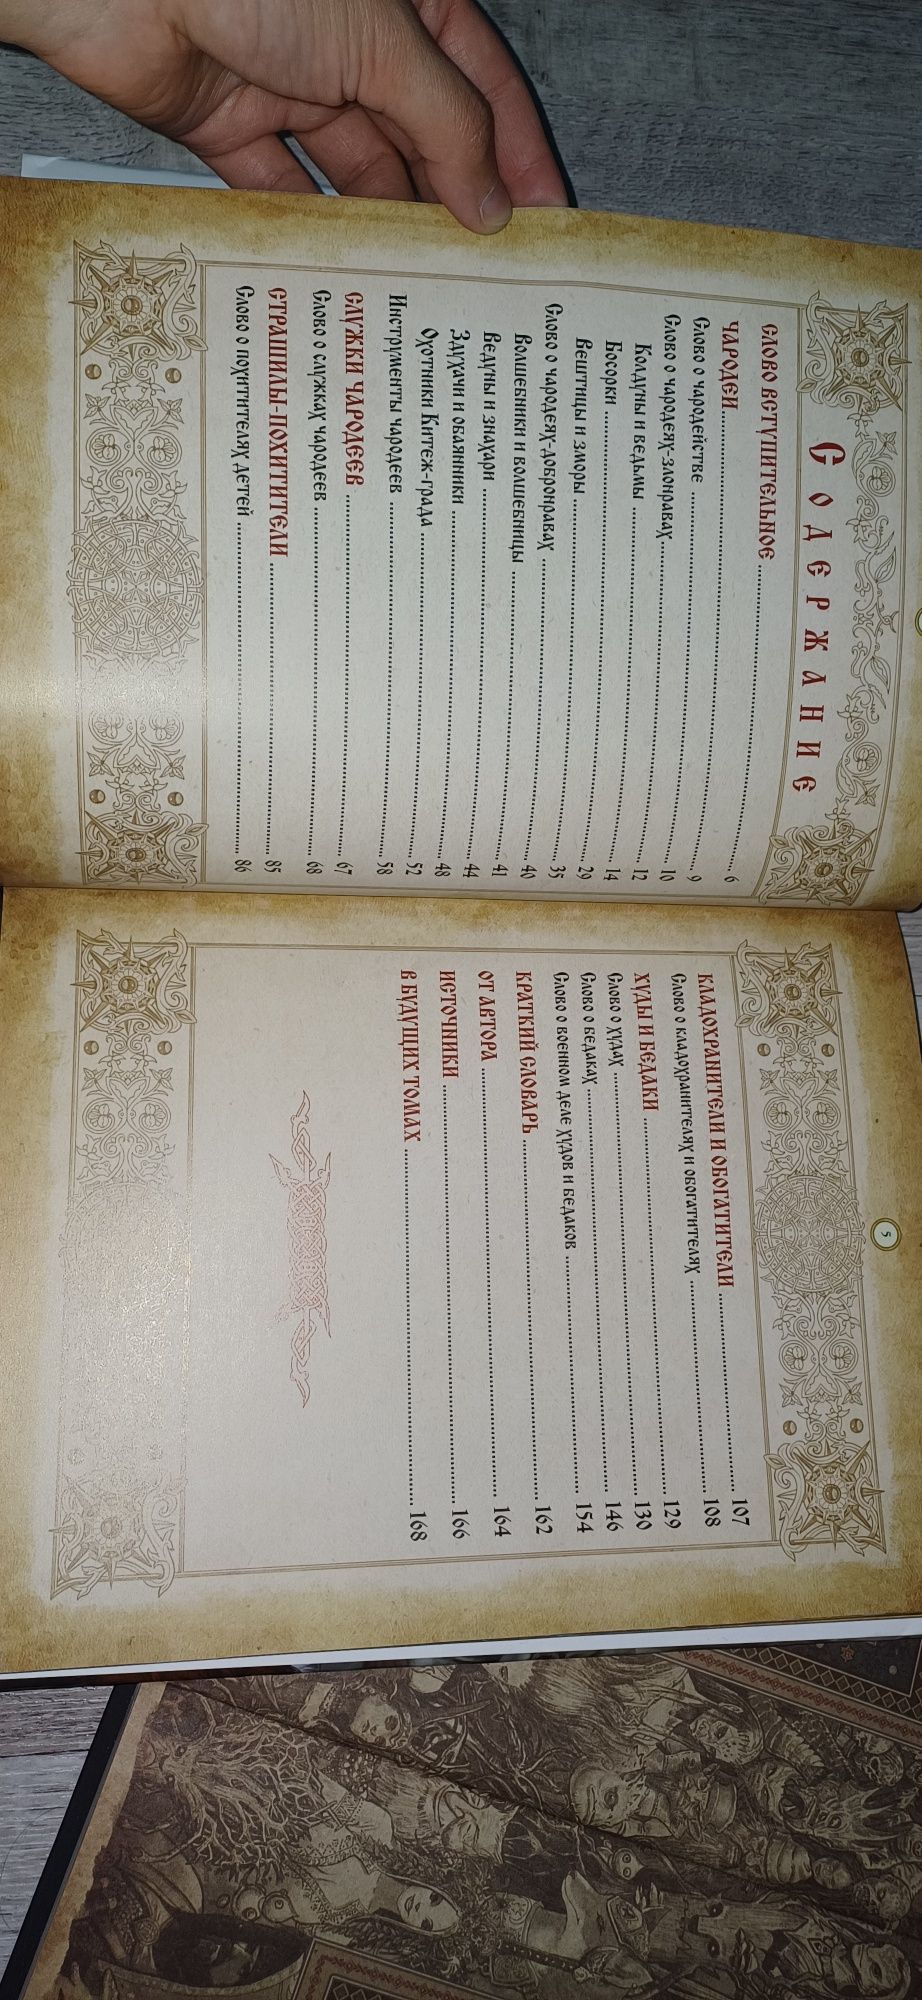 Содержание
СЛОВО ВСТУПИТЕЛЬНОЕ ........ 6
ЧАРОДЕИ ........ 9
Слово о чародействе ........ 10
Слово о чародеях-злонравах ........ 12
Колдуны и ведьмы ........ 14
Босорки ........ 29
Вештицы и зморы ........ 35
Слово о чародеях-добронравах ........ 40
Волшебники и волшебницы ........ 41
Ведуны и знахари ........ 44
Здухачи и обаянники ........ 48
Охотники Китеж-града ........ 52
Инструменты чародеев ........ 58
СЛУЖКИ ЧАРОДЕЕВ ........ 67
Слово о служках чародеев ........ 68
СТРАШИЛЫ-ПОХИТИТЕЛИ ........ 85
Слово о похитителях детей ........ 86
5
КЛАДОХРАНИТЕЛИ И ОБОГАТИТЕЛИ ........ 107
Слово о кладохранителях и обогатителях ........ 108
ХУДЫ И БЕДАКИ ........ 129
Слово о худах ........ 130
Слово о бедаках ........ 146
Слово о военном деле худов и бедаков ........ 154
КРАТКИЙ СЛОВАРЬ ........ 162
ОТ АВТОРА ........ 164
ИСТОЧНИКИ ........ 166
В БУДУЩИХ ТОМАХ ........ 168